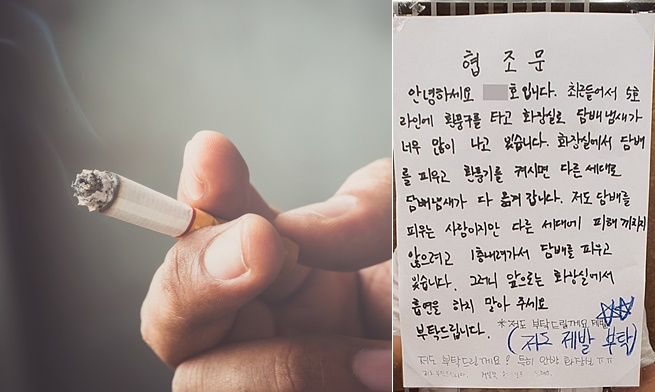 협 조 문
안녕하세요 호입니다. 최근들어서 5호
라인에 환풍구를 타고 화장실로 담배냄새가
너무 많이 나고 있습니다. 화장실에서 담배
를 피우고 환풍기를 켜시면 다른 세대로
담배냄새가 다 옮겨 갑니다. 저도 담배를
피우는 사람이지만 다른 세대에 피해 끼치지
않으려고 1층내려가서 담배를 피우고
있습니다. 그러니 앞으로는 화장실에서
흡연을 하지 말아 주세요
부탁드립니다. *저도 부탁드립께요 제발
(저도 제발 부탁)
저도 부탁드릴게요? 특히 안방 화장실 ㅠㅠ